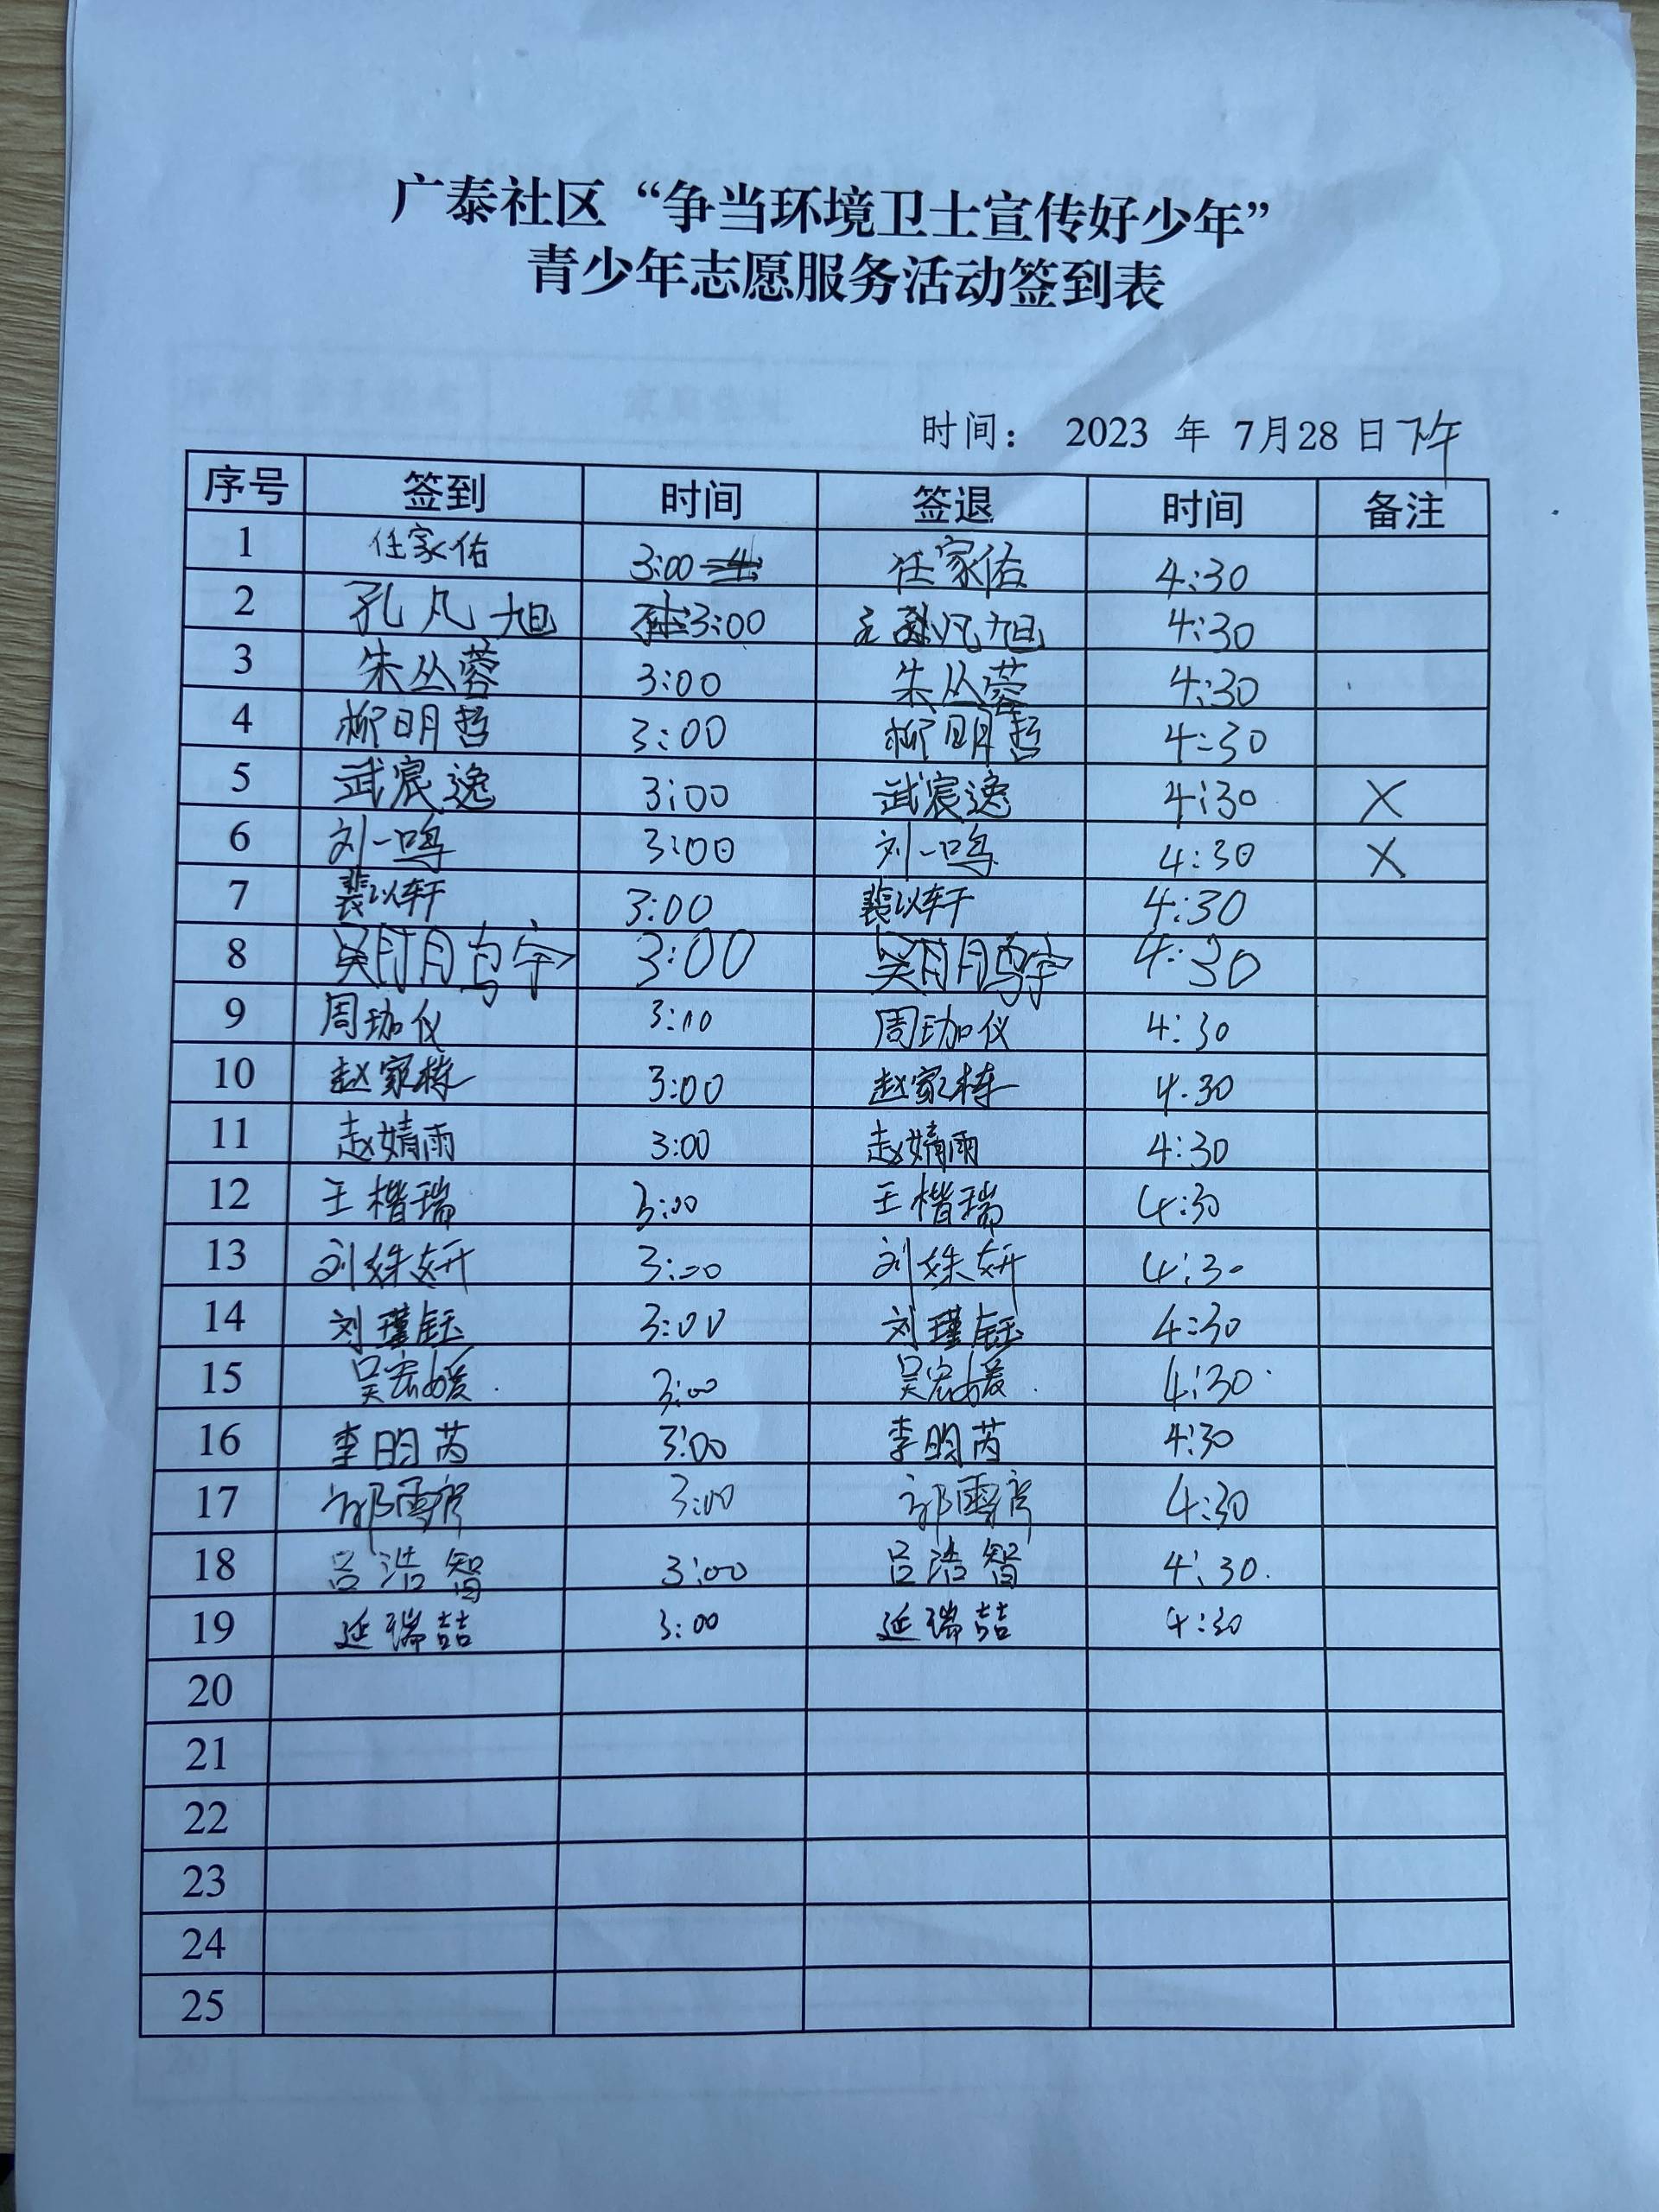 广泰社区“争当环境卫士宣传好少年”
青少年志愿服务活动签到表
时间： 2023 年 7月28日下午
序号 签到 时间 签退 时间 备注
1 任家佑 3:00 任家佑 4:30
2 孔凡旭 3:00 凡旭 4:30
3 朱丛蓉 3:00 朱丛蓉 4:30
4 柳明哲 3:00 柳明哲 4:30
5 武宸逸 3:00 武宸逸 4:30 X
6 刘一鸣 3:00 刘一鸣 4:30 X
7 裴以轩 3:00 裴以轩 4:30
8 3:00 4:30
9 周珈仪 3:00 周珈仪 4:30
10 赵家栋 3:00 赵家栋 4.30
11 赵婧雨 3:00 赵婧雨 4:30
12 王楷瑞 3:00 王楷瑞 4:30
13 刘姝妍 3:00 刘姝妍 4:30
14 刘瑾钰 3:00 刘瑾钰 4:30
15 吴宏媛 3:00 吴宏媛 4:30
16 李明芮 3:00 李明芮 4:30
17 3:00 4:30
18 吕浩智 3:00 吕浩智 4:30.
19 延瑞喆 3:00 延瑞喆 4:30
20
21
22
23
24
25